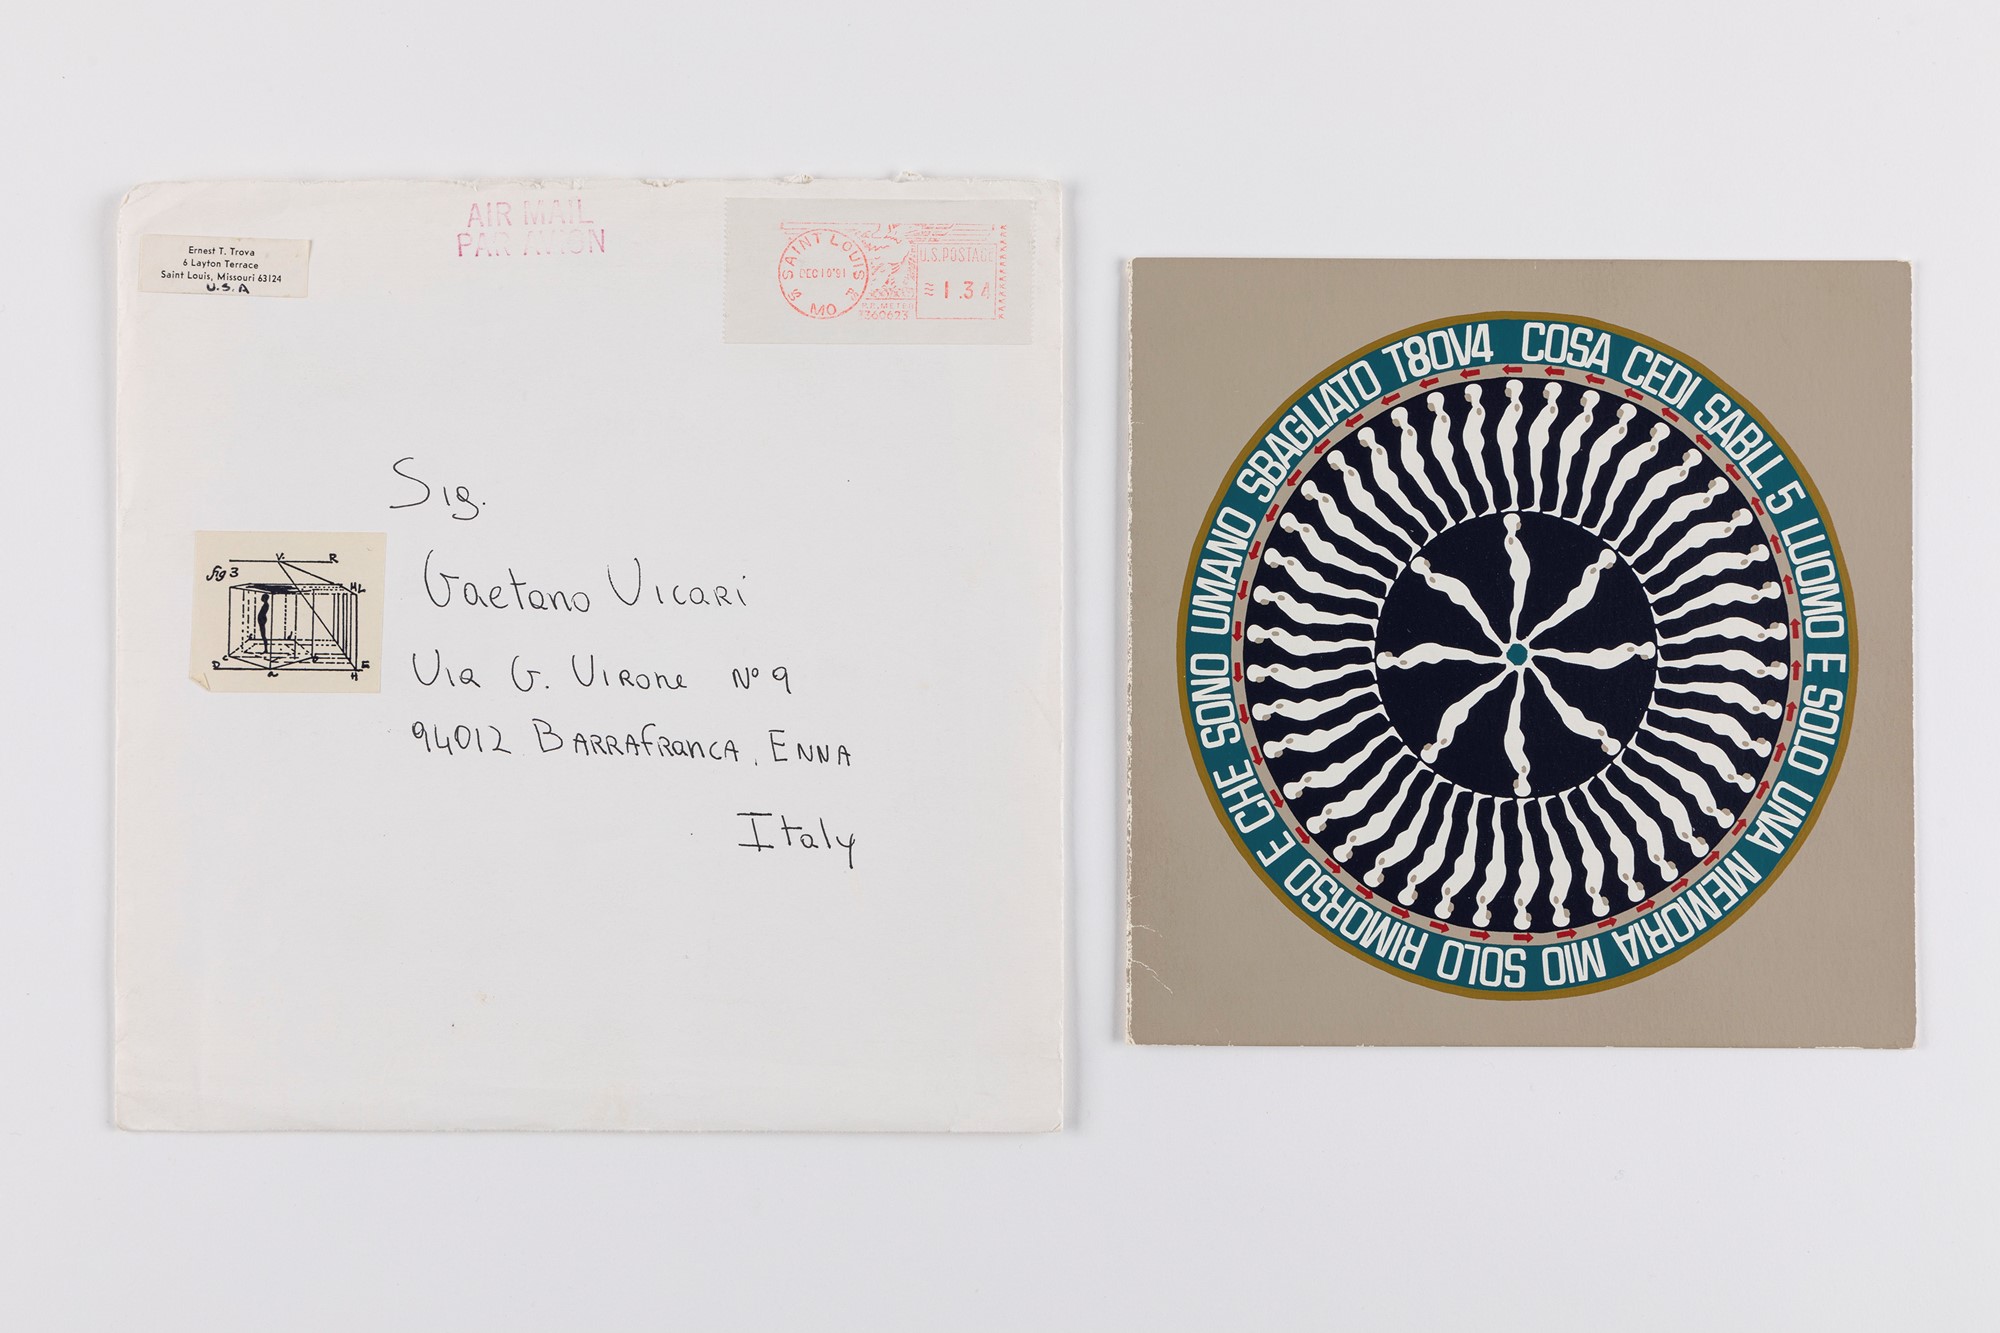 Ernest T. Trova
6 Layton Terrace
Saint Louis, Missouri 63124
U.S.A
AIR MAIL
PAR AVION
SAINT LOUIS
DEC10'91
MO
U.S. POSTAGE
1.34
P.B. METER
Sig.
Gaetano Vicari
Via G. Virone N° 9
94012 Barrafranca, Enna
Italy
fig 3
V. R
H L
D C
a
H
E
COSA CEDI SABLL 5 LUOMO E SOLO UNA MEMORIA MIO SOLO RIMORSO E CHE SONO UMANO SBAGLIATO T80V4